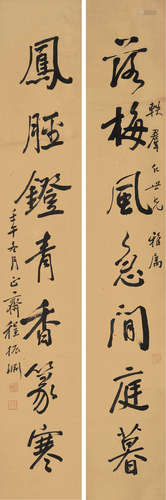 軼羣仁世兄雅屬
落梅風急閒庭暮
鳳脛鐙青香篆寒
壬午冬月正齋程振